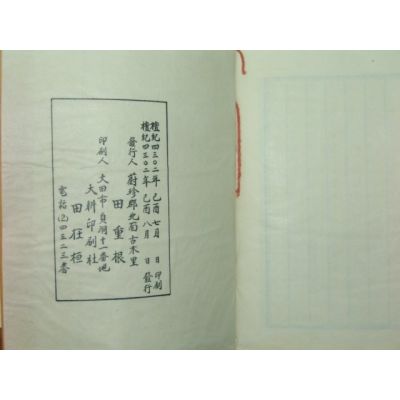 檀紀四三〇二年 己酉七月 日 印刷
檀紀四三〇二年 己酉八月 日 發行
發行人 蔚珍郡北面古木里
田重根
印刷人 大田市貞洞十一番地
大料印刷社
田在桓
電話②四三二三番